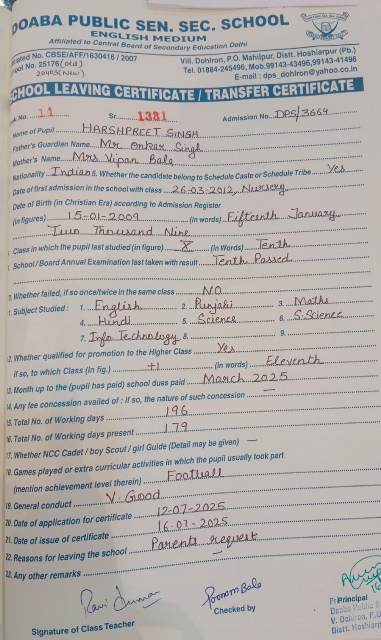 DOABA PUBLIC SEN. SEC. SCHOOL
ENGLISH MEDIUM
Affiliated to Central Board of Secondary Education Delhi
No. CBSE/AFF/1630416 / 2007 Vill. Dohlron, P.O. Mahilpur, Distt. Hoshiarpur (Pb.)
No. 25176 (old) Tel. 01884-245496, Mob.99143-43496,99143-41496
20495 (New) E-mail : dps_dohlron@yahoo.co.in
SCHOOL LEAVING CERTIFICATE / TRANSFER CERTIFICATE
No. 11 Sr. 1381 Admission No. DPS/3664
Name of Pupil HARSHPREET SINGH
Father's Guardian Name Mr Onkar Singh
Mother's Name Mrs Vipan Bala
Nationality Indian 5. Whether the candidate belong to Schedule Caste or Schedule Tribe Yes
Date of first admission in the school with class 26-03-2012, Nursery
Date of Birth (in Christian Era) according to Admission Register
(in figures) 15-01-2009 (in words) Fifteenth January
Two Thousand Nine
Class in which the pupil last studied (in figure) X (in Words) Tenth
School / Board Annual Examination last taken with result Tenth Passed
Whether failed, if so once/twice in the same class NO
Subject Studied : 1. English 2. Punjabi 3. Maths
4. Hindi 5. Science 6. S.Science
7. Info Technology 8. 9.
Whather qualified for promotion to the Higher Class Yes
if so, to which Class (in fig.) +1 (in words) Eleventh
Month up to the (pupil has paid) school dues paid March 2025
14. Any fee concession availed of : if so, the nature of such concession —
15. Total No. of Working days 196
16. Total No. of Working days present 179
17. Whether NCC Cadet / boy Scout / girl Guide (Detail may be given) —
Games played or extra curricular activities in which the pupil usually took part
(mention achievement level therein) Football
19. General conduct V. Good
20. Date of application for certificate 12-07-2025
21. Date of issue of certificate 16-07-2025
22. Reasons for leaving the school Parents request
Any other remarks —
Ravi Kumar Poonam Bala
Signature of Class Teacher Checked by Principal
Doaba Public
V. Dohlron, P.O.
Distt. Hoshiarp